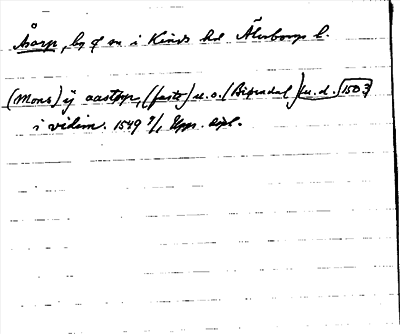 Åsarp, by o sn i Kinds hd Älvsborgs l.
(Mons) ij aastorp, (faste) u.o. (Bispedal) (u.d. 1503)
i vidim. 1549 9/1 Upps. dipl.